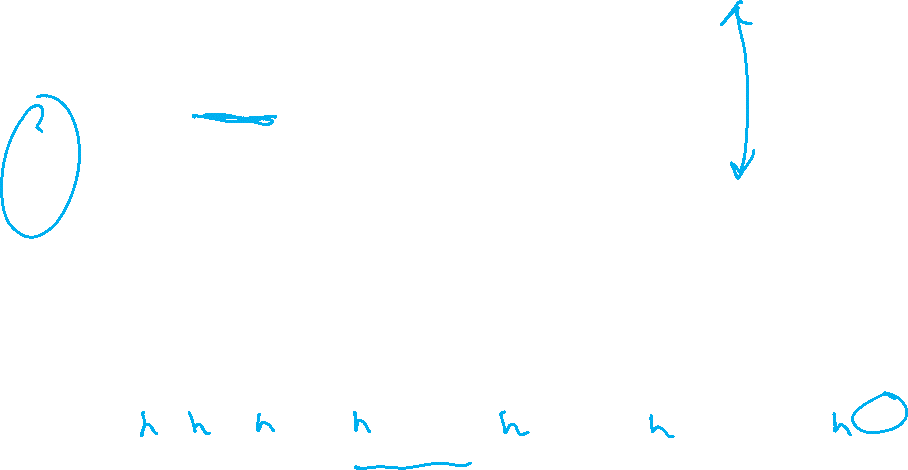 h h h h h h h